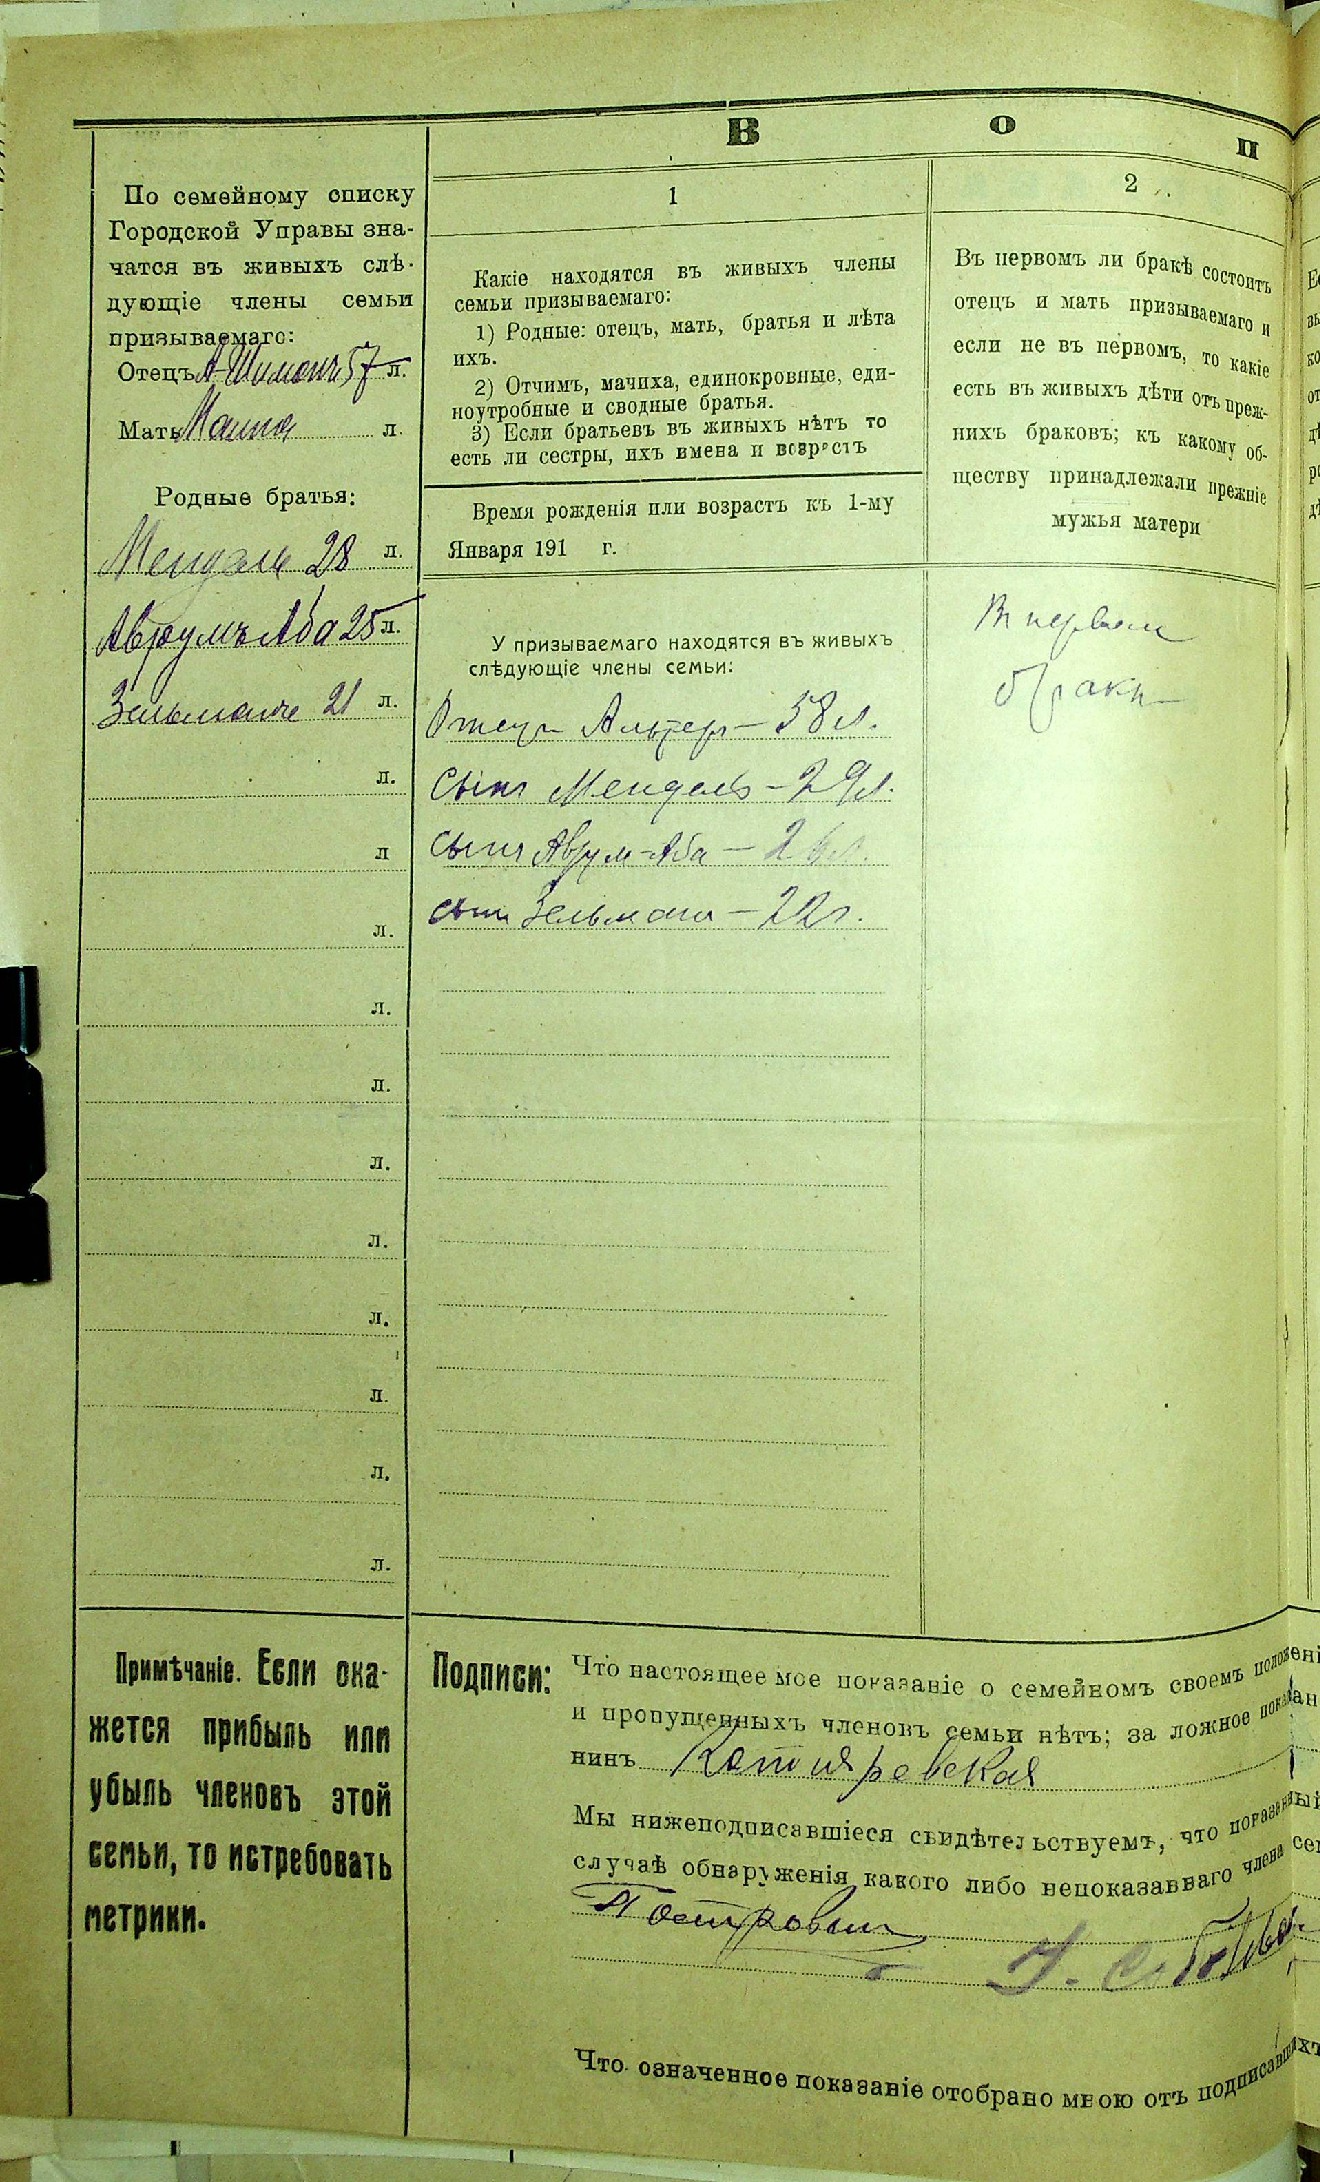 В о п
По семейному списку
Городской Управы зна-
чатся въ живыхъ слѣ-
дующіе члены семьи
призываемаго:
Отецъ А-Шимонъ 57 л.
Мать л.
Родные братья:
Мендель 28 л.
Аврумъ Аба 25 л.
Зельманъ 21 л.
л.
л
л.
л.
л.
л.
л.
л.
л.
л.
л.
1
Какіе находятся въ живыхъ члены
семьи призываемаго:
1) Родные: отецъ, мать, братья и лѣта
ихъ.
2) Отчимъ, мачиха, единокровные, еди-
ноутробные и сводные братья.
3) Если братьевъ въ живыхъ нѣтъ то
есть ли сестры, ихъ имена и возрастъ
Время рожденія или возрастъ къ 1-му
Января 191 г.
У призываемаго находятся въ живыхъ
слѣдующіе члены семьи:
Отецъ Альтеръ – 58 л.
Сынъ Мендель – 29 л.
сынъ Аврум-Аба – 26 л.
сынъ Зельман – 22 г.
2
Въ первомъ ли бракѣ состоитъ
отецъ и мать призываемаго и
если не въ первомъ, то какіе
есть въ живыхъ дѣти отъ преж-
нихъ браковъ; къ какому об-
ществу принадлежали прежніе
мужья матери
В первом
бракѣ
Примѣчаніе. Если ока-
жется прибыль или
убыль членовъ этой
семьи, то истребовать
метрики.
Подписи: Что настоящее мое показаніе о семейномъ своемъ положені
и пропущенныхъ членовъ семьи нѣтъ; за ложное показан
нинъ Котляревская
Мы нижеподписавшіеся свидѣтельствуемъ, что показанный
случаѣ обнаруженія какого либо непоказаннаго члена сем
Что означенное показаніе отобрано мною отъ подписавшихъ